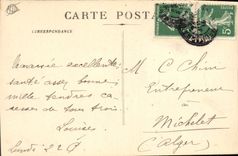 CARTE POSTALE
CORRESPONDANCE
Traversée excellente
santé assez bonne
mille tendres ca
resses de tous trois
Louise
Lundi
M C Chini
Entrepreneur
à
Michelet
(Alger)
5